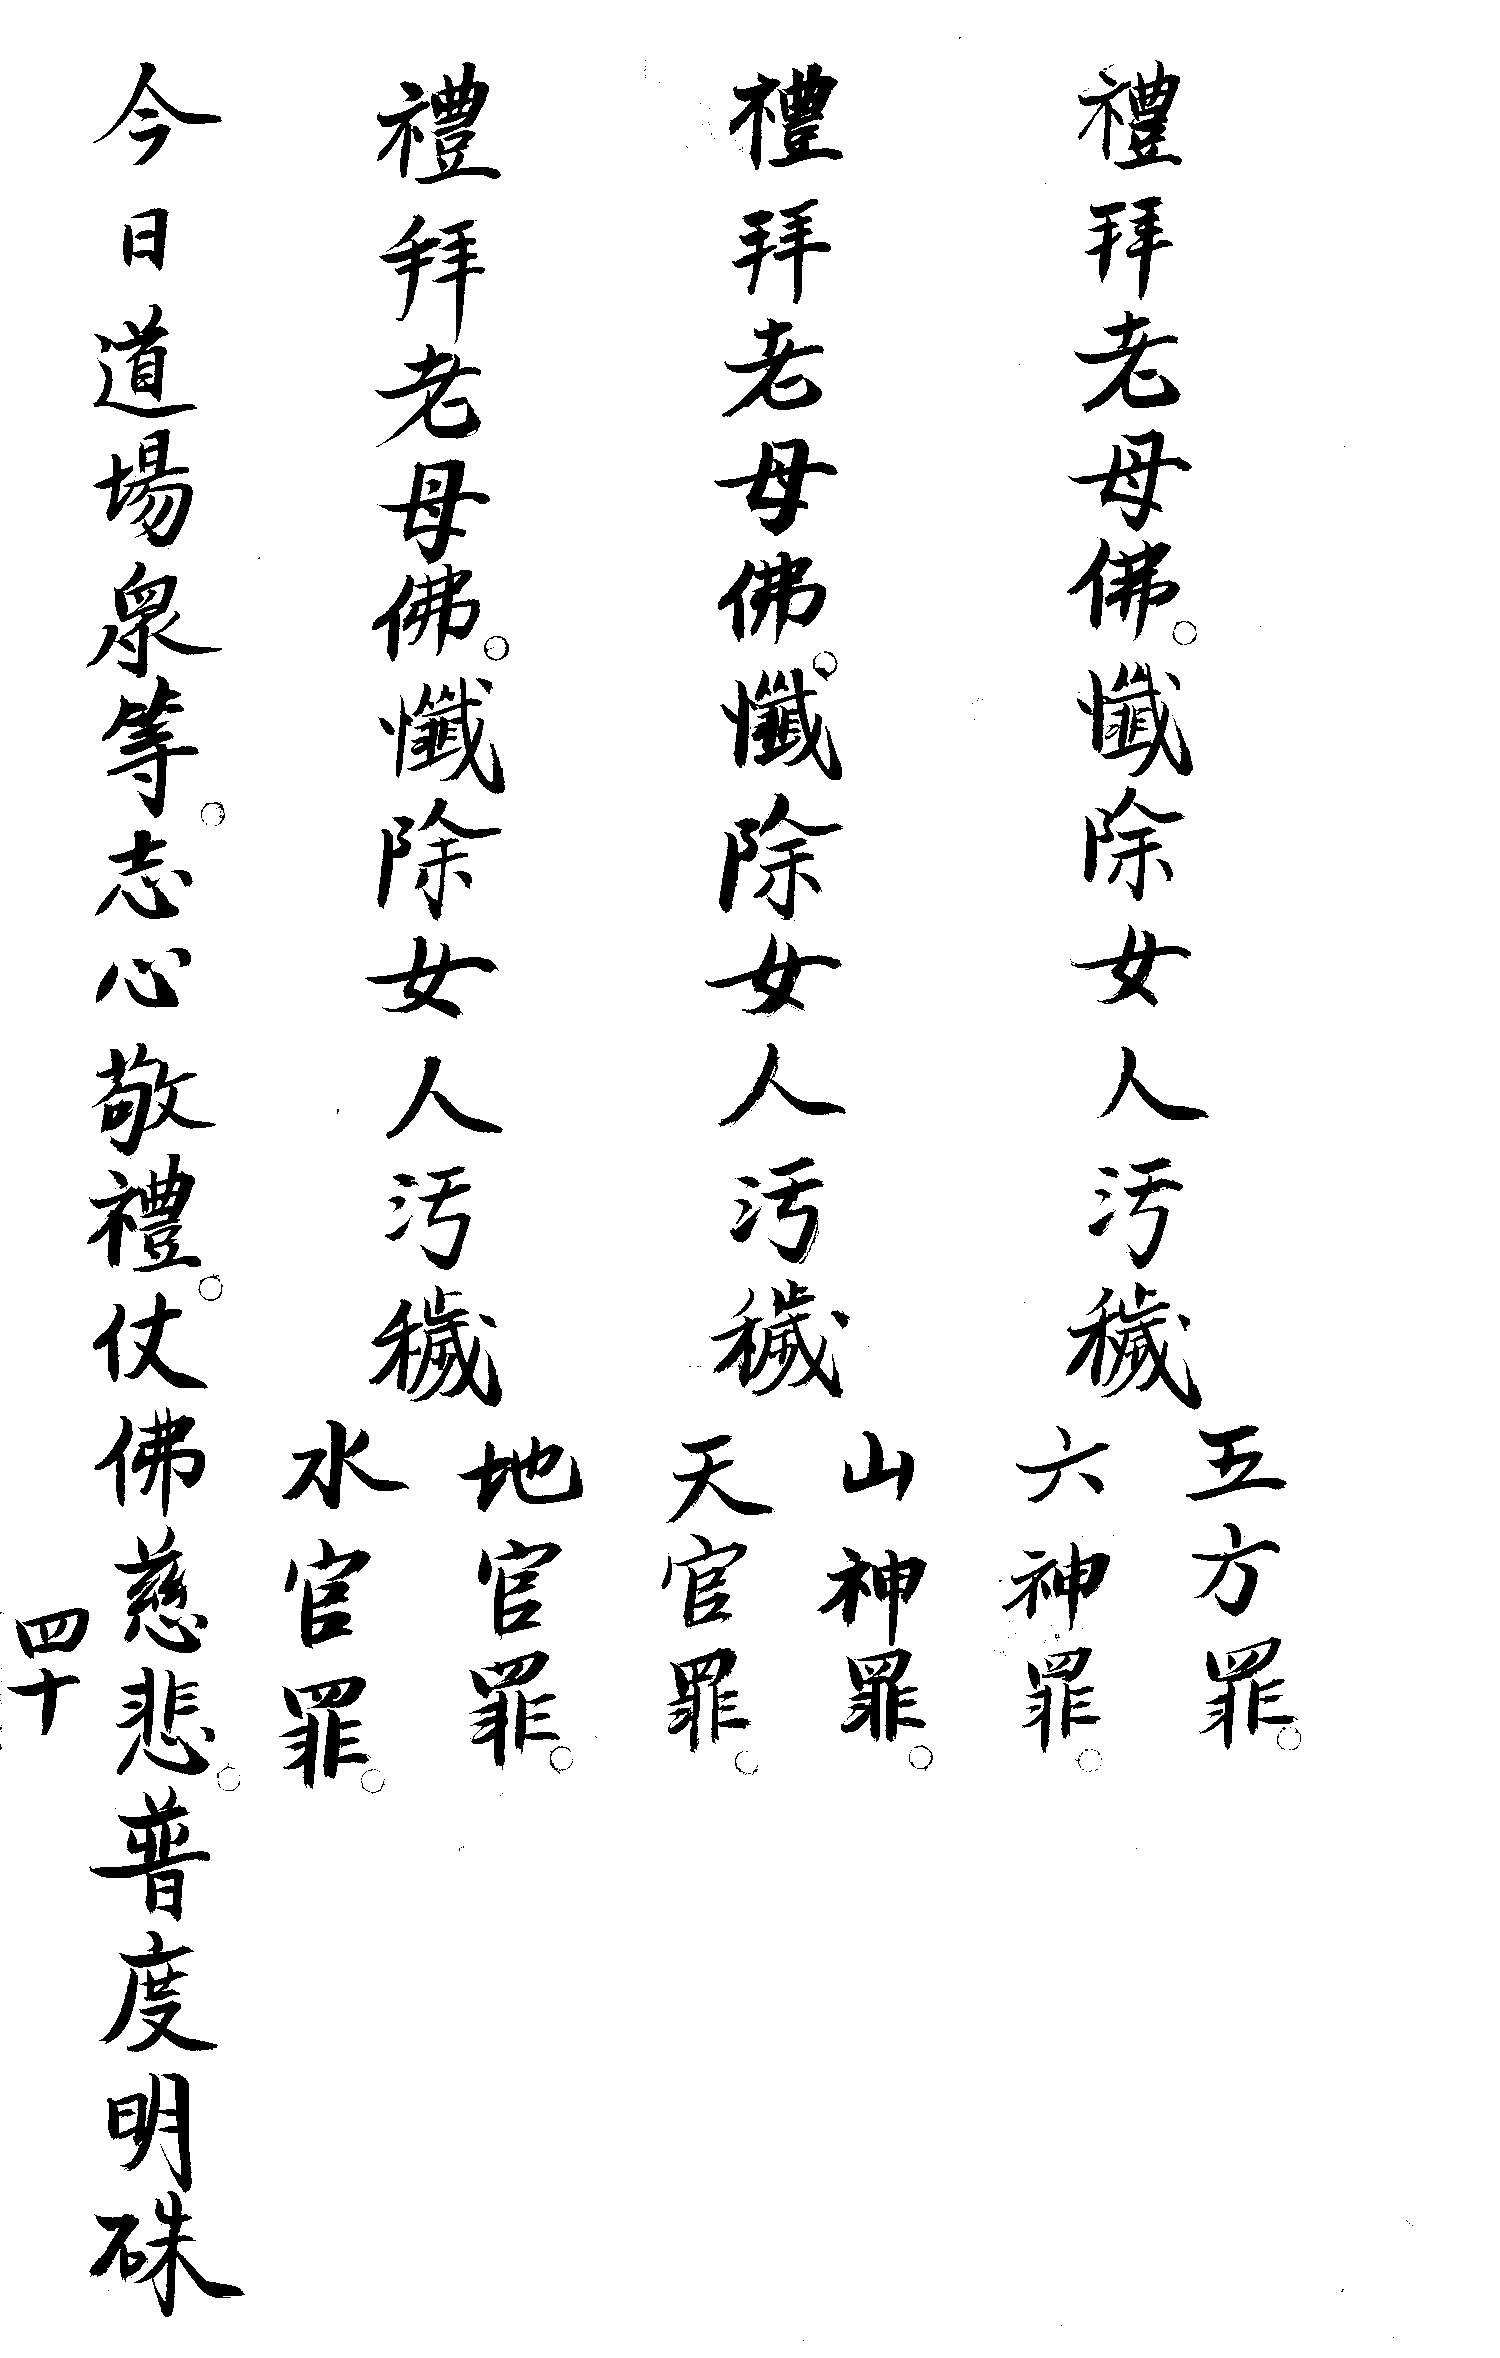 禮拜老母佛。懺除女人汚穢
五方罪。
六神罪。
禮拜老母佛。懺除女人汚穢
山神罪。
天官罪。
禮拜老母佛。懺除女人汚穢
地官罪。
水官罪。
今日道場衆等。志心敬禮。仗佛慈悲。普度明硃
四十